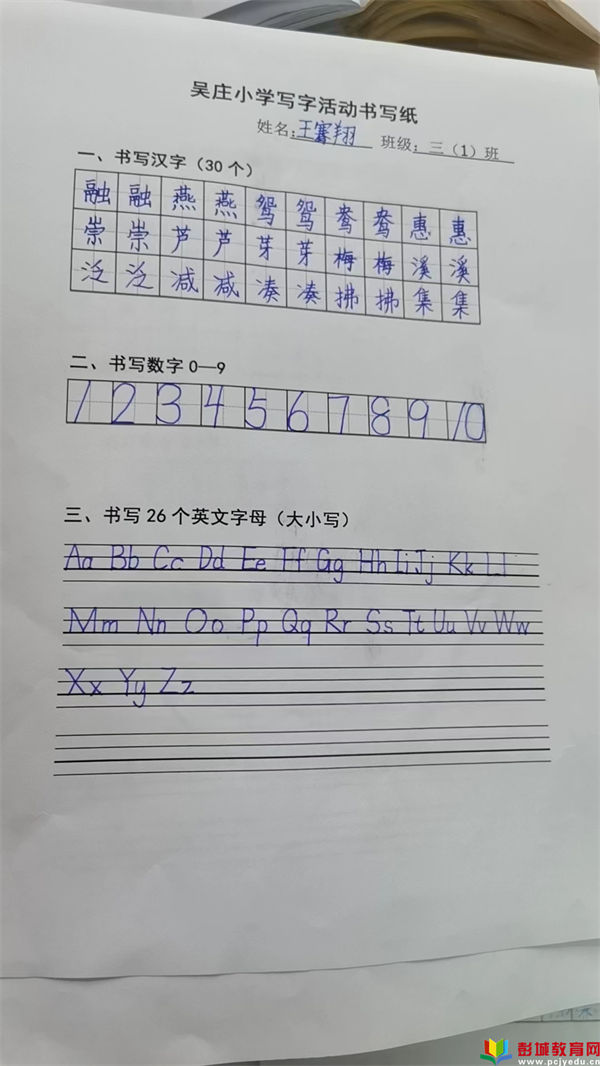 吴庄小学写字活动书写纸
姓名:王骞翔 班级:三（1）班
一、书写汉字（30个）
融 融 燕 燕 鸳 鸳 鸯 鸯 惠 惠
崇 崇 芦 芦 芽 芽 梅 梅 溪 溪
泛 泛 减 减 凑 凑 拂 拂 集 集
二、书写数字0—9
1 2 3 4 5 6 7 8 9 10
三、书写26个英文字母（大小写）
Aa Bb Cc Dd Ee Ff Gg Hh Ii Jj Kk Ll
Mm Nn Oo Pp Qq Rr Ss Tt Uu Vv Ww
Xx Yy Zz
彭城教育网
www.pcjyedu.cn